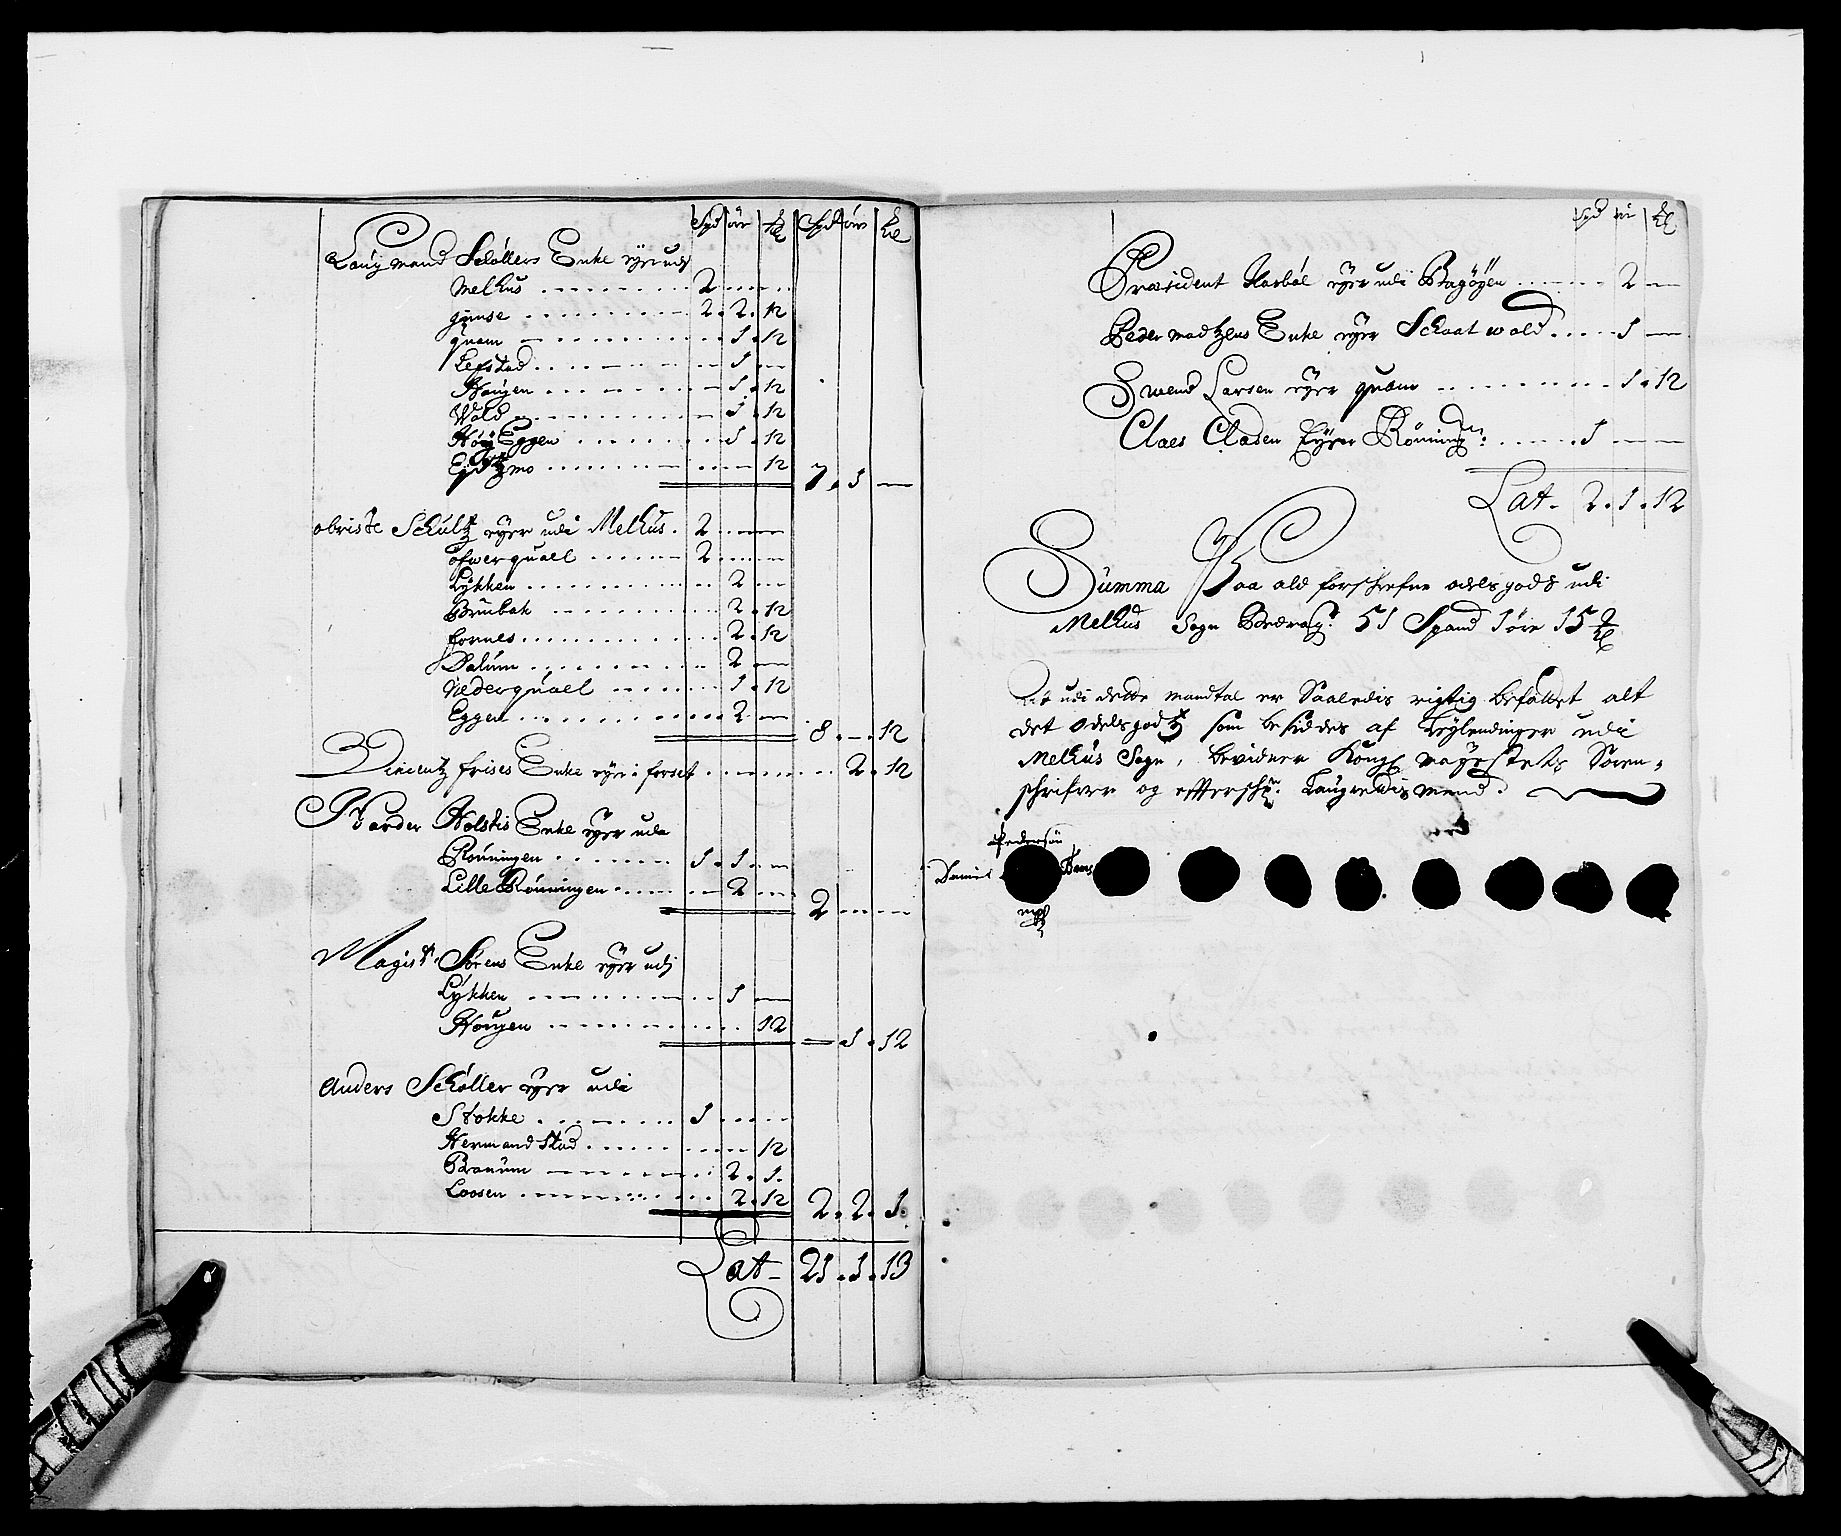 Spd ør Spd ør
Laugmand Schøllers Enke eyer udj
Melhus 2
gimse 2 . 2 . 12
quam 1 . 12
Lefstad 1
Haugen 1 . 12
Wold 1 . 12
Høy Eggen 1 . 12
12
7 . 1 —
obriste Schultz eyer udi Melhus . 2
ofwerquael 2
Lykken 2
Brubak 2 . 12
fornes 2 . 12
Salum 2
Nederquael 1 . 12
Eggen 2
8 . — . 12
Vincentz frises Enke eyer i forset 2 . 12
Holstis Enke eyer udi
Rønningen 1 . 1
Lille Rønningen 2
2
Magistr. Sørens Enke eyer udj
Lykken 1
Hougen 12
— . 1 . 12
Anders Schøller eyer udi
Stokke 1
Hermandstad 12
Branum 2 . 1
Loosen 2 . 12
2 . 2 . 1
Lat — 21 . 1 . 13
Spd
Præsident eyer udi Bagøyen 2 —
Peder Madtzens Enke eyer Schaatwold 1 —
Swend Larsen eyer quam 1 . 12
Claes Claden Eyer Rønning 1
Lat — 2 . 1 . 12
Summa Paa ald forschrefne odelsgods udi
Melhus Sogn 51 Spand 1 øre 15
At udi dette mandtal er Saaledis rigtig befattet alt
det odelsgodtz som besiddes af Leylendinger udi
Melhus Sogn, bevidner Kongl mayestets Soren-
schrifver og effterschr. Laugredismend.
Pedersøn
Daniel
mpp